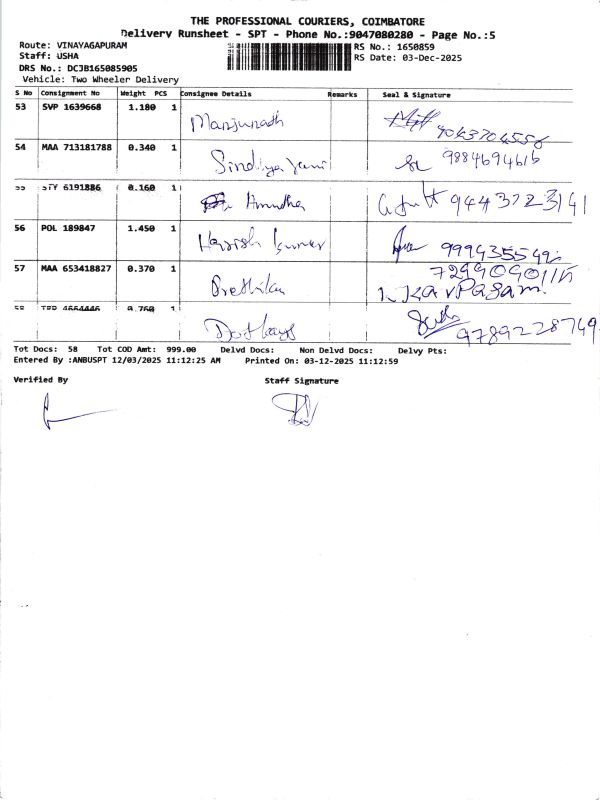 THE PROFESSIONAL COURIERS, COIMBATORE
Delivery Runsheet - SPT - Phone No.:9047080280 - Page No.:5
Route: VINAYAGAPURAM
RS No.: 1650859
Staff: USHA
RS Date: 03-Dec-2025
DRS No.: DCJB165085905
Vehicle: Two Wheeler Delivery
S No Consignment No Weight PCS Consignee Details Remarks Seal & Signature
53 SVP 1639668 1.180 1
Manjunath
54 MAA 713181788 0.340 1 9884694616
Sindhya
55 STY 6191886 0.160 1
Anudha 9443723141
56 POL 189847 1.450 1
Harish kumar
57 MAA 653418827 0.370 1
58 4664446 0.760 1
9789228749
Tot Docs: 58 Tot COD Amt: 999.00 Delvd Docs: Non Delvd Docs: Delvy Pts:
Entered By :ANBUSPT 12/03/2025 11:12:25 AM Printed On: 03-12-2025 11:12:59
Verified By Staff Signature